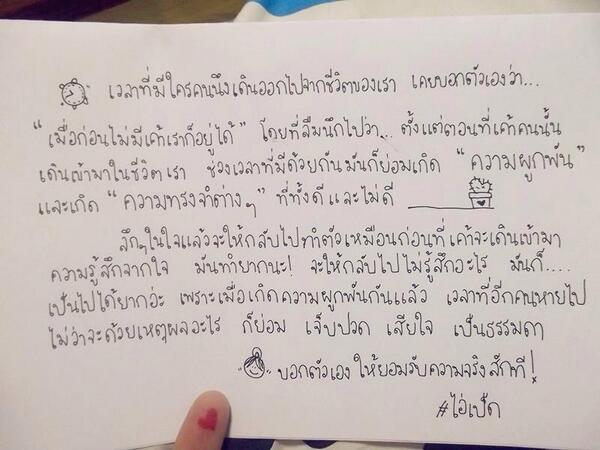 เวลาที่มีใครคนนึงเดินออกไปจากชีวิตของเรา เคยบอกตัวเองว่า...
"เมื่อก่อนไม่มีเค้าเราก็อยู่ได้" โดยที่ลืมนึกไปว่า... ตั้งแต่ตอนที่เค้าคนนั้น
เดินเข้ามาในชีวิตเรา ช่วงเวลาที่มีด้วยกันมันก็ย่อมเกิด "ความผูกพัน"
และเกิด "ความทรงจำต่างๆ" ที่ทั้งดีและไม่ดี
ลึกๆในใจแล้วจะให้กลับไปทำตัวเหมือนก่อนที่เค้าจะเดินเข้ามา
ความรู้สึกจากใจ มันทำยากนะ! จะให้กลับไปไม่รู้สึกอะไร มันก็....
เป็นไปได้ยากอ่ะ เพราะเมื่อเกิดความผูกพันกันแล้ว เวลาที่อีกคนหายไป
ไม่ว่าจะด้วยเหตุผลอะไร ก็ย่อม เจ็บปวด เสียใจ เป็นธรรมดา
บอกตัวเอง ให้ยอมรับความจริงสักที!
#ไอ่เป็ด